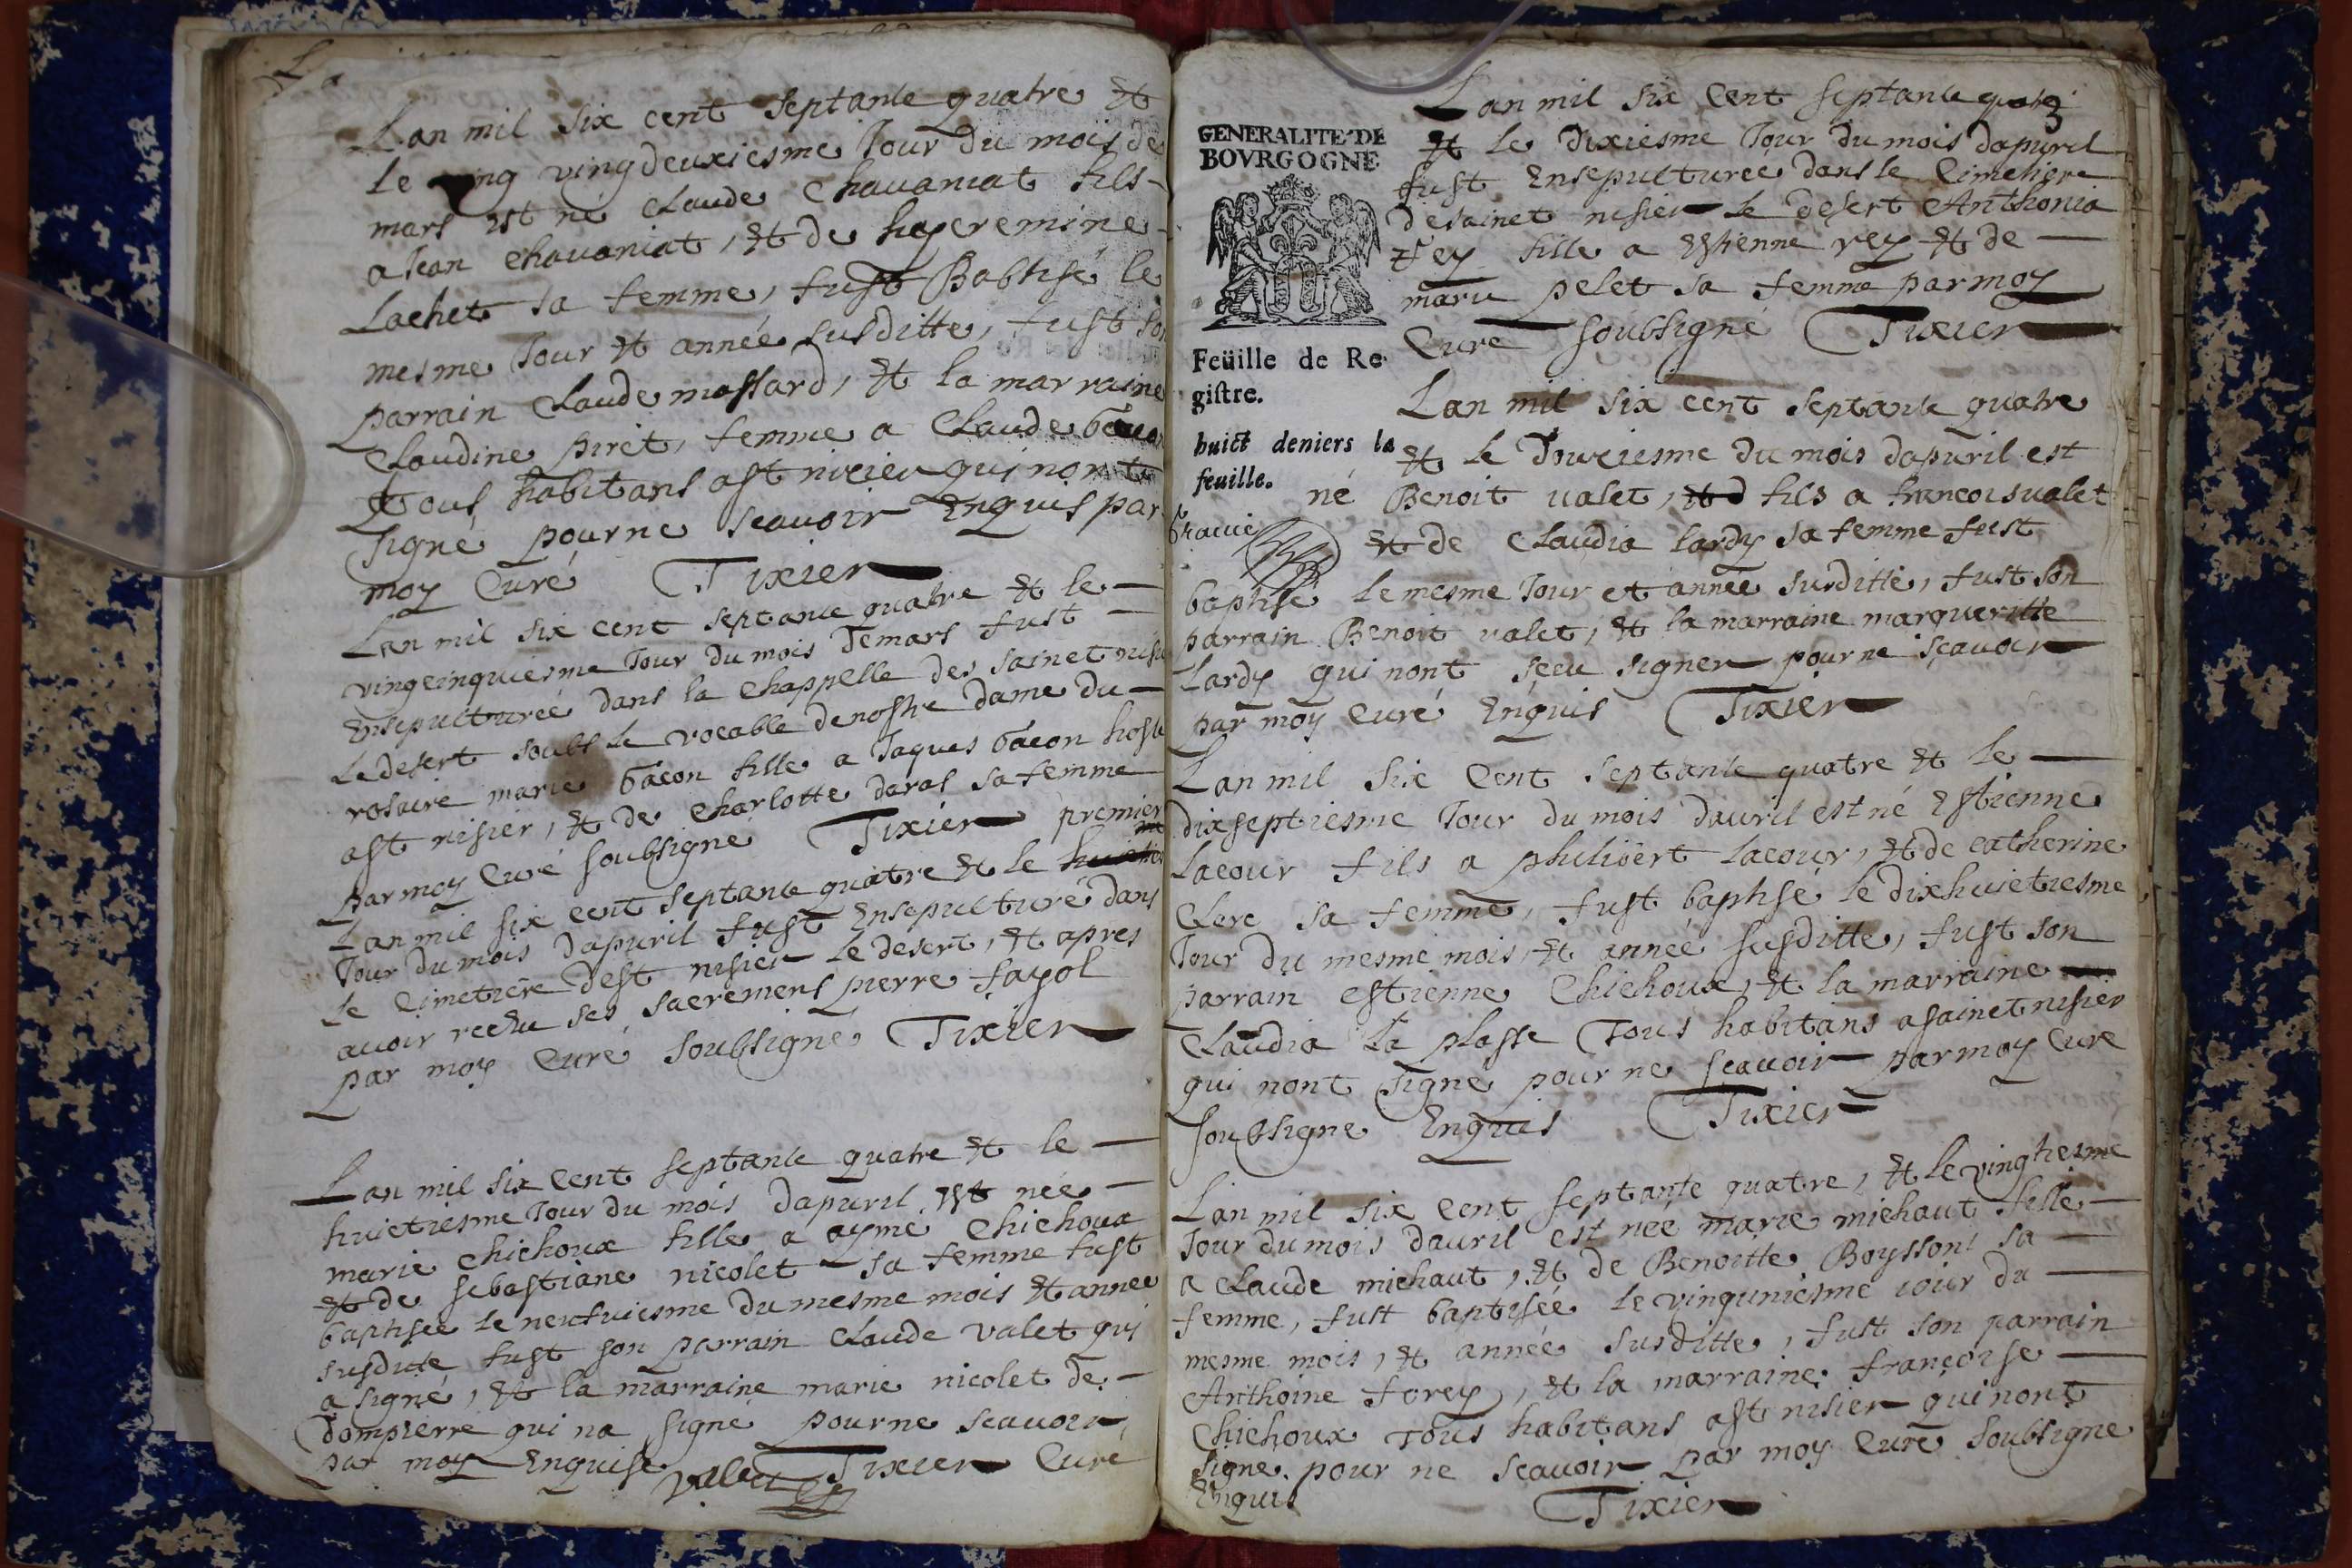 Lan mil six cent septante quatre et
le vingdeuxiesme Jour du mois de
mars est né claude Chauaniat fils
a Jean chauaniat, et de
Lachet sa femme, fust Babtisé le
mesme Jour et année susditte, fust son
parrain Claude massard, et la marraine
Claudine piret, femme a Claude bacon
Tous habitans a st nicier qui nont
signé pour ne scauoir Enquis par
moy Curé Tixier
Lan mil six cent septante quatre et le
vingcinquiesme Jour du mois de mars fust
Ensepulturée dans la chappelle de sainct nisier
Le desert soubs le vocable de nostre dame du
rosaire marie bacon fille a Jaques bacon hoste
a st nisier, et de Charlotte daras sa femme
par moy Curé soubsigné Tixier
premier
Lan mil six cent septante quatre et le
Jour du mois dapuril fust Ensepulturé dans
le Cimetiere de st nisier le desert, et apres
auoir receu ses sacremens pierre fayol
par moy Curé soubsigné Tixier
Lan mil six cent septante quatre et le
huictiesme Jour du mois dapuril est née
marie chichoux fille a aymé Chichoux
et de sebastiane nicolet sa femme fust
baptisee le neufuiesme du mesme mois et annee
susditte fust son parrain claude valet qui
a signé, et la marraine marie nicolet de
dompierre qui na signé pour ne scauoir
par moy Enquise Tixier Curé
valet
3
Lan mil six Cent septante quatre
et le Dixiesme Jour du mois dapuril
fust Ensepulturée dans le Cimetiere
de sainct nisier le desert Anthonia
rey fille a Estienne rey et de
marie pelet sa femme par moy
Curé soubsigné Tixier
GENERALITE DE
BOVRGOGNE
Feüille de Re-
gistre.
huict deniers la
feuille.
Lan mil six cent septante quatre
et le Douziesme du mois dapuril est
né Benoit valet, fils a francois valet
et de Claudia lardy sa femme fust
baptisé le mesme Jour et année surditte, fust son
parrain Benoit valet, et la marraine margueritte
Lardy qui nont sceu signer pour ne scauoir
par moy Curé Enquis Tixier
Lan mil six Cent septante quatre et le
dixseptiesme Jour du mois dauril est né Estienne
Lacour fils a philibert Lacour, et de catherine
Clere sa femme, fust baptisé le dixhuictiesme
Jour du mesme mois, et année susditte, fust son
parrain estienne Chichoux, et la marraine
Claudia La plasse Tous habitans a sainct nisier
qui nont signé pour ne scauoir par moy Cure
soubsigne Enquis Tixier
Lan mil six Cent septante quatre, et le vingtiesme
Jour du mois dauril est née marie michaut fille
a Claude michaut, et de Benoitte Boysson sa
femme, fust baptisée le vinguniesme iour du
mesme mois, et année susditte, fust son parrain
Anthoine forey, et la marraine françoise
Chichoux Tous habitans a st nisier qui nont
signe pour ne scauoir par moy Cure soubsigne
Enquis Tixier